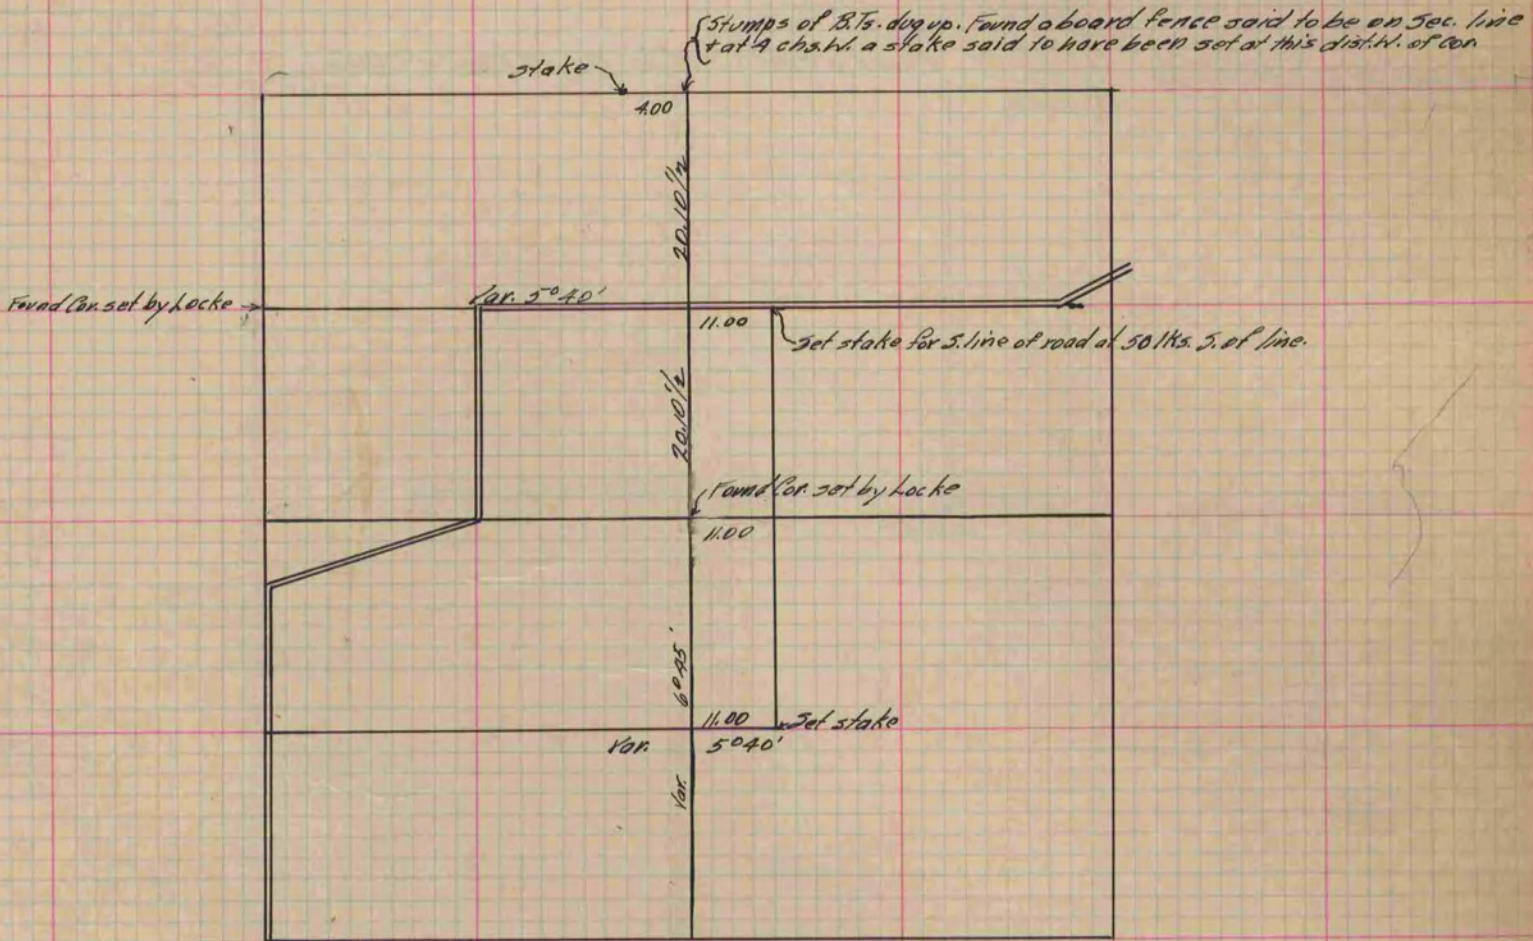 Stumps of B.Ts. dug up. Found a board fence said to be on Sec. line
+ at 4 chs. W. a stake said to have been set at this dist. W. of Cor.
stake
4.00
20.10 1/2
Found Cor. set by Locke
Var. 5° 40'
11.00
Set stake for S. line of road at 50 lks. S. of line.
20.10 1/2
Found Cor. set by Locke
11.00
6° 45'
11.00
Set stake
Var.
5° 40'
Var.